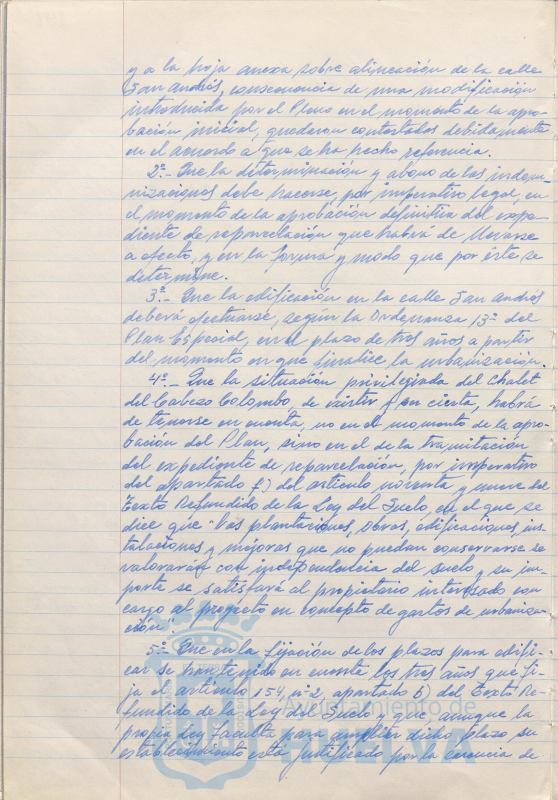 y a la hoja anexa sobre alineación de la calle
San Andrés, consecuencia de una modificación
introducida por el Pleno en el momento de la apro-
bación inicial, quedaron contestados debidamente
en el acuerdo a que se ha hecho referencia.
2º.- Que la determinación y abono de las indem-
nizaciones debe hacerse, por imperativo legal, en
el momento de la aprobación definitiva del expe-
diente de reparcelación que habrá de llevarse
a efecto, y en la forma y modo que por éste se
determine.
3º.- Que la edificación en la calle San Andrés
deberá efectuarse, según la Ordenanza 13ª del
Plan Especial, en el plazo de tres años a partir
del momento en que finalice la urbanización.
4º.- Que la situación privilegiada del Chalet
del Cabezo Colombo, de existir y ser cierta, habrá
de tenerse en cuenta, no en el momento de la apro-
bación del Plan, sino en el de la tramitación
del expediente de reparcelación, por imperativo
del apartado f) del artículo noventa y nueve del
Texto Refundido de la Ley del Suelo, en el que se
dice que "las plantaciones, obras, edificaciones, ins-
talaciones y mejoras que no puedan conservarse se
valorarán con independencia del suelo y su im-
porte se satisfará al propietario interesado con
cargo al proyecto en concepto de gastos de urbaniza-
ción".
5º.- Que en la fijación de los plazos para edifi-
car se han tenido en cuenta los tres años que fi-
ja el artículo 154, nº 2, apartado b) del Texto Re-
fundido de la Ley del Suelo y que, aunque la
propia Ley faculta para ampliar dicho plazo, su
establecimiento está justificado por la carencia de
Ayuntamiento de
HUELVA